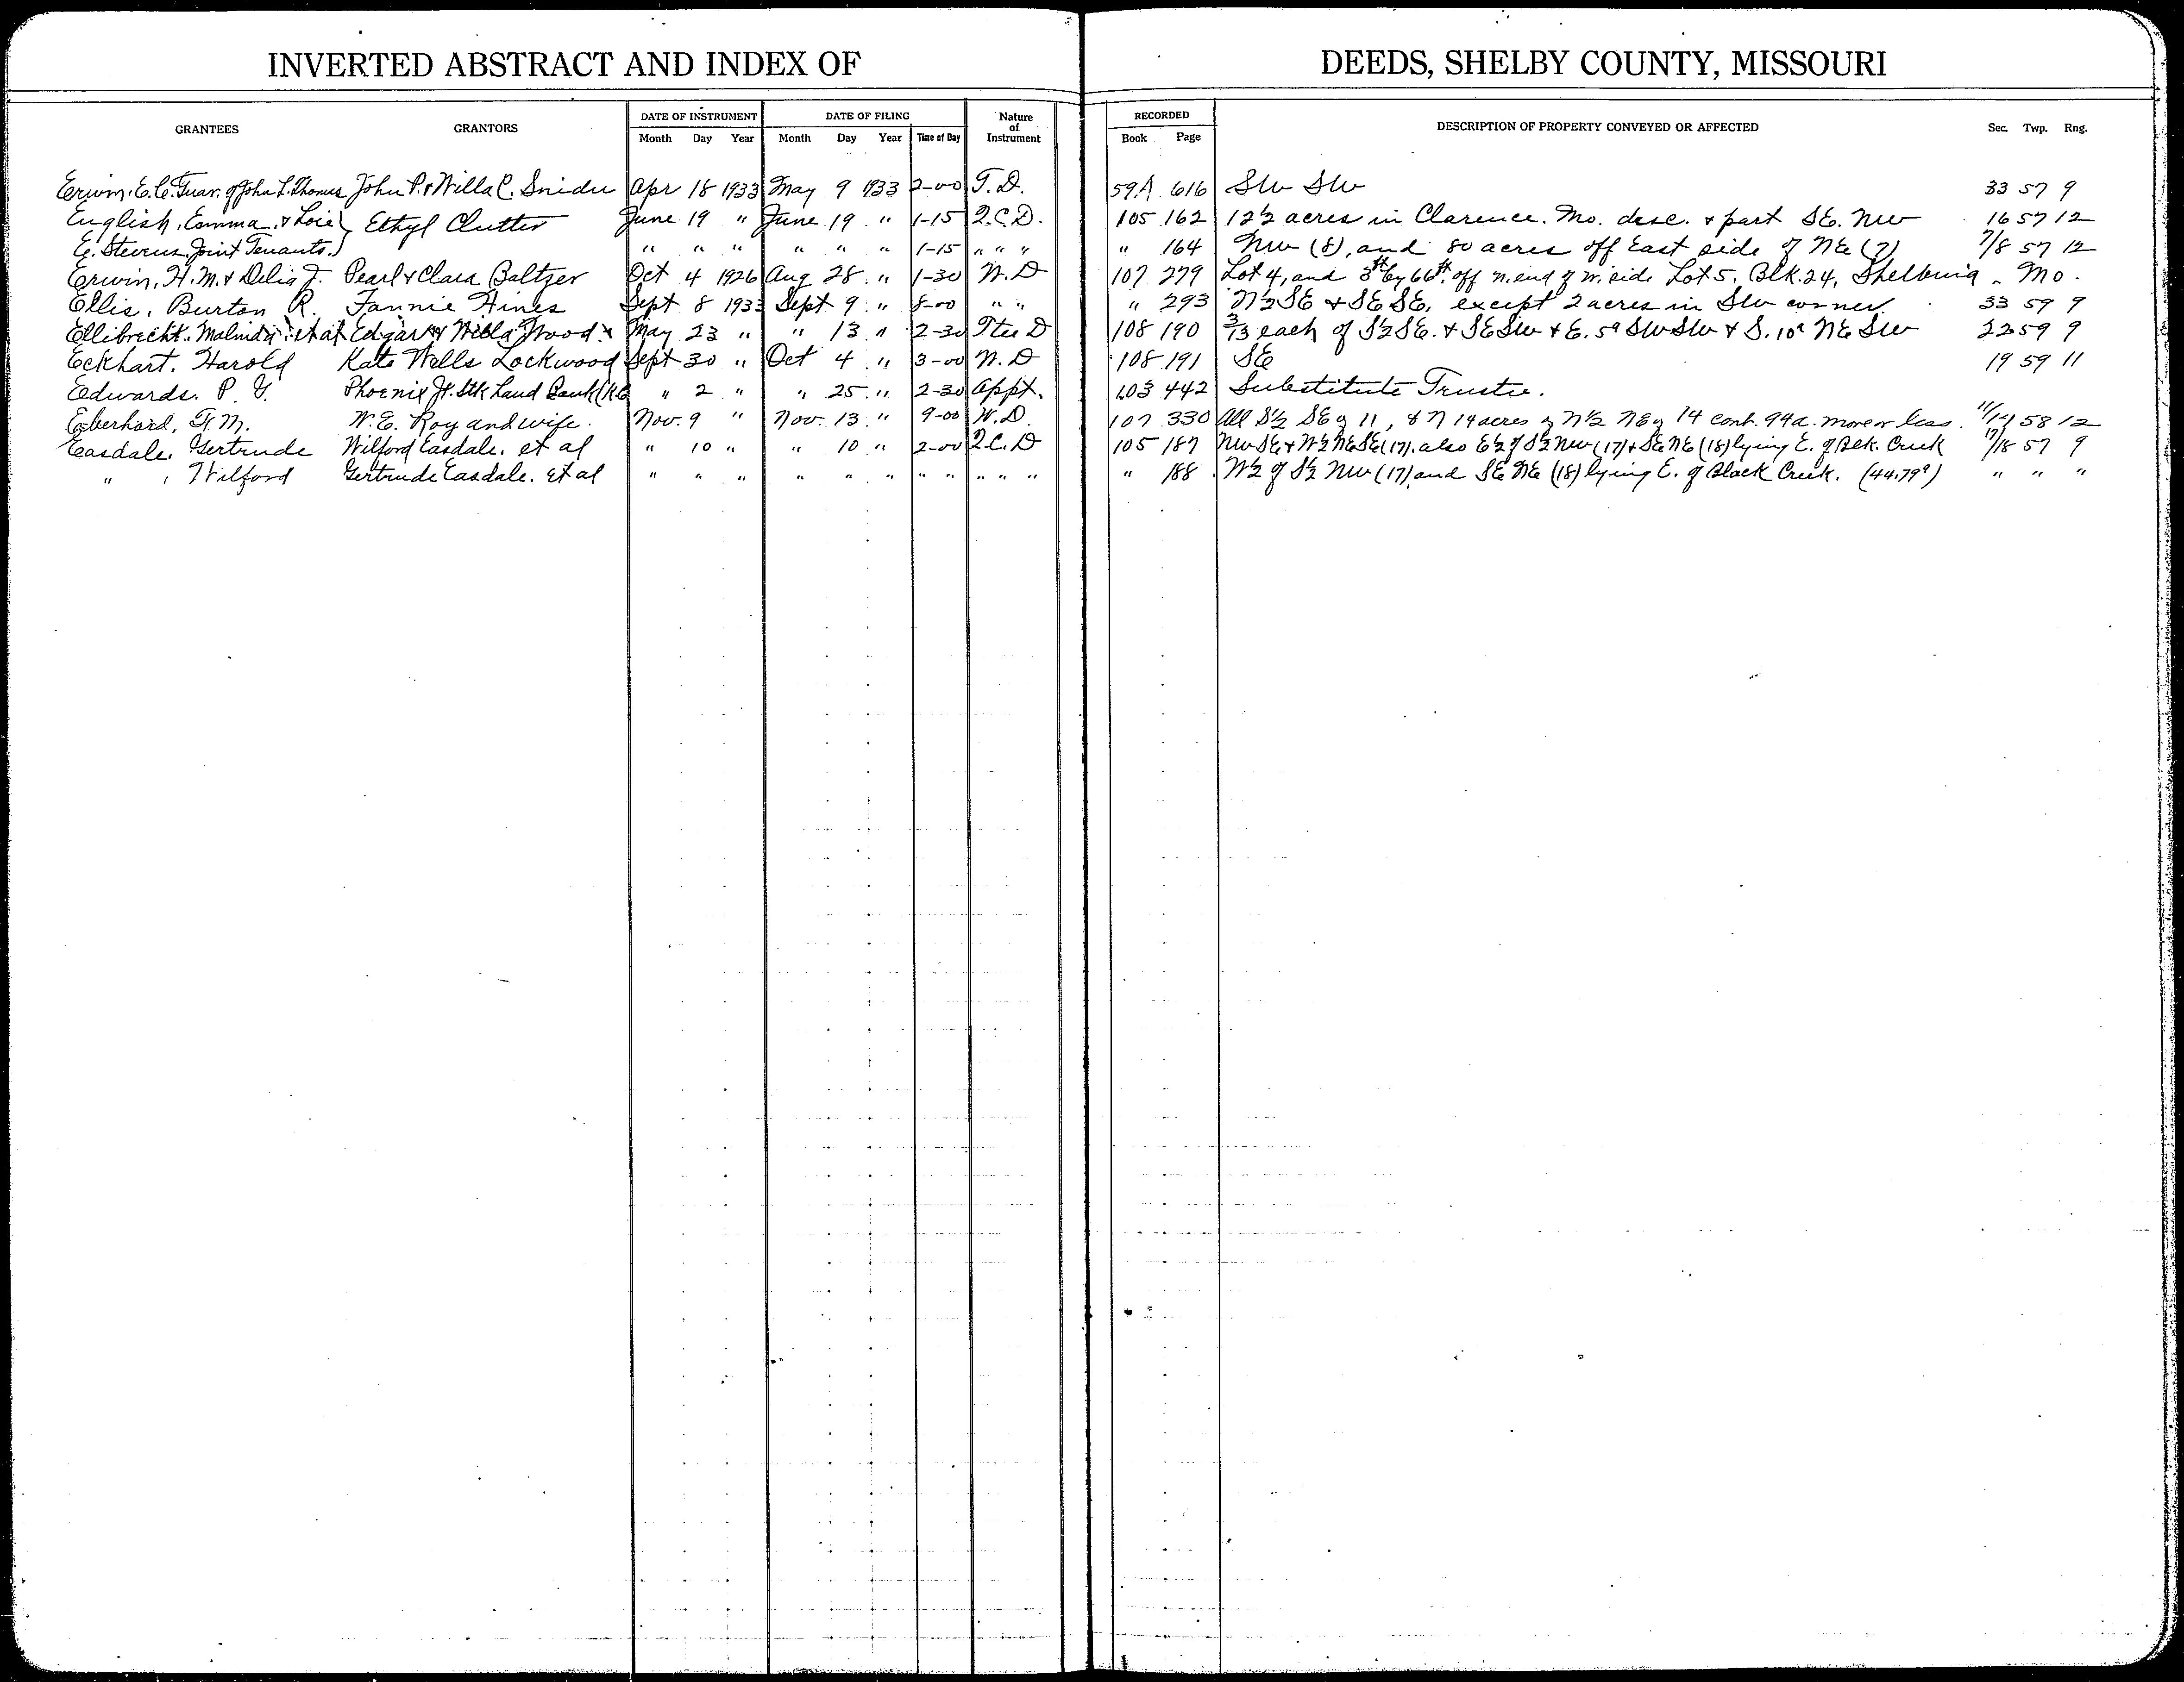 INVERTED ABSTRACT AND INDEX OF DEEDS, SHELBY COUNTY, MISSOURI
GRANTEES GRANTORS DATE OF INSTRUMENT DATE OF FILING Nature of Instrument RECORDED DESCRIPTION OF PROPERTY CONVEYED OR AFFECTED Sec. Twp. Rng.
Month Day Year Month Day Year Time of Day Book Page
Erwin, E.C. Guar. of John L. Thomas John P. & Willa C. Snider Apr 18 1933 May 9 1933 2-00 T.D. 59A 616 SW SW 33 57 9
English, Emma, & Lois } Ethyl Clutter June 19 " June 19 " 1-15 Q.C.D. 105 162 12½ acres in Clarence. Mo. desc. & part SE. NW 16 57 12
E. Stevens, Joint Tenants.} " " " " " " 1-15 " " " " 164 NW (8), and 80 acres off East side of NE (7) 7/8 57 12
Erwin, H.M. & Delia J. Pearl & Clara Baltzer Oct 4 1926 Aug 28 " 1-30 W.D 107 279 Lot 4, and 3ft by 66ft off n. end of w. side Lot 5, Blk. 24, Shelbina Mo.
Ellis, Burton R. Fannie Hines Sept 8 1933 Sept 9 " 8-00 " " " 293 N½ SE & SE SE, except 2 acres in SW corner 33 59 9
Ellibrecht, Malinda et al Edgar Wood & May 23 " " 13 " 2-30 Ttee D 108 190 3/13 each of S½ SE. & SE SW & E. 5a SW SW & S. 10a NE SW 22 59 9
Eckhart, Harold Kate Wells Lockwood Sept 30 " Oct 4 " 3-00 W.D 108 191 SE 19 59 11
Edwards, P. G. Phoenix Jt. Stk Land Bank (KC " 2 " " 25 " 2-30 Appt. 103 442 Substitute Trustee.
Eberhard, F.M. W.E. Roy and wife. Nov. 9 " Nov. 13 " 9-00 W.D. 107 330 All S½ SE of 11, & N 14 acres of N½ NE of 14 cont. 94a. more or less. 11/14 58 12
Easdale, Gertrude Wilford Easdale, et al " 10 " " 10 " 2-00 Q.C.D 105 187 NW SE & W½ NE SE (17), also E½ of S½ NW (17) & SE NE (18) lying E. of Blk. Creek 17/18 57 9
" , Wilford Gertrude Easdale, et al " " " " " " " " " " " " 188 W½ of S½ NW (17) and SE NE (18) lying E. of Black Creek. (44.79a) " " "